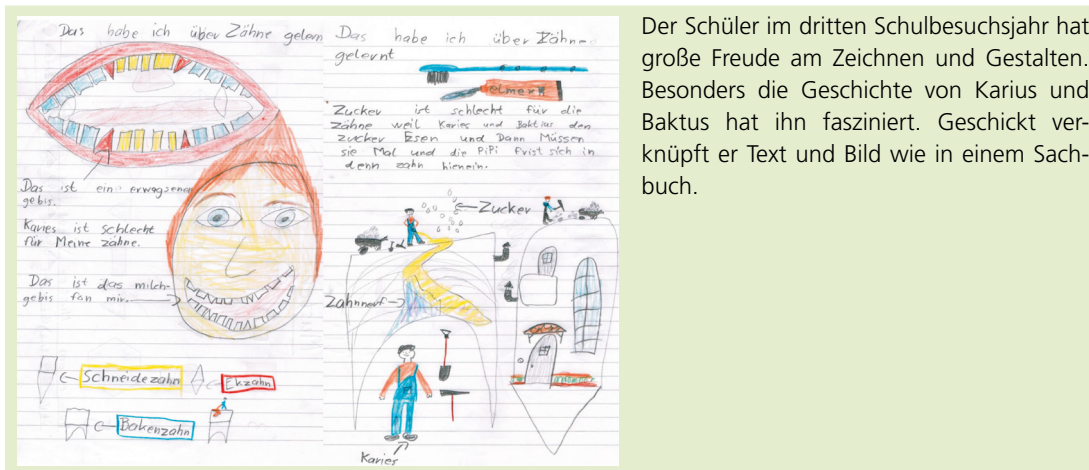 Das habe ich über Zähne gelern
Das ist ein erwagsenen
gebis.
Karies ist schlecht
für Meine zähne.
Das ist das milch-
gebis fon mir.
Schneidezahn
Ekzahn
Bakenzahn
Das habe ich über Zähne
gelernt
elmex
Zucker ist schlecht für die
Zähne weil Karies und Baktius den
zucker Esen und Dann Müssen
sie Mal und die PiPi frist sich in
denn zahn hienein.
Zucker
Zahnnerf
Karies
Der Schüler im dritten Schulbesuchsjahr hat
große Freude am Zeichnen und Gestalten.
Besonders die Geschichte von Karius und
Baktus hat ihn fasziniert. Geschickt ver-
knüpft er Text und Bild wie in einem Sach-
buch.